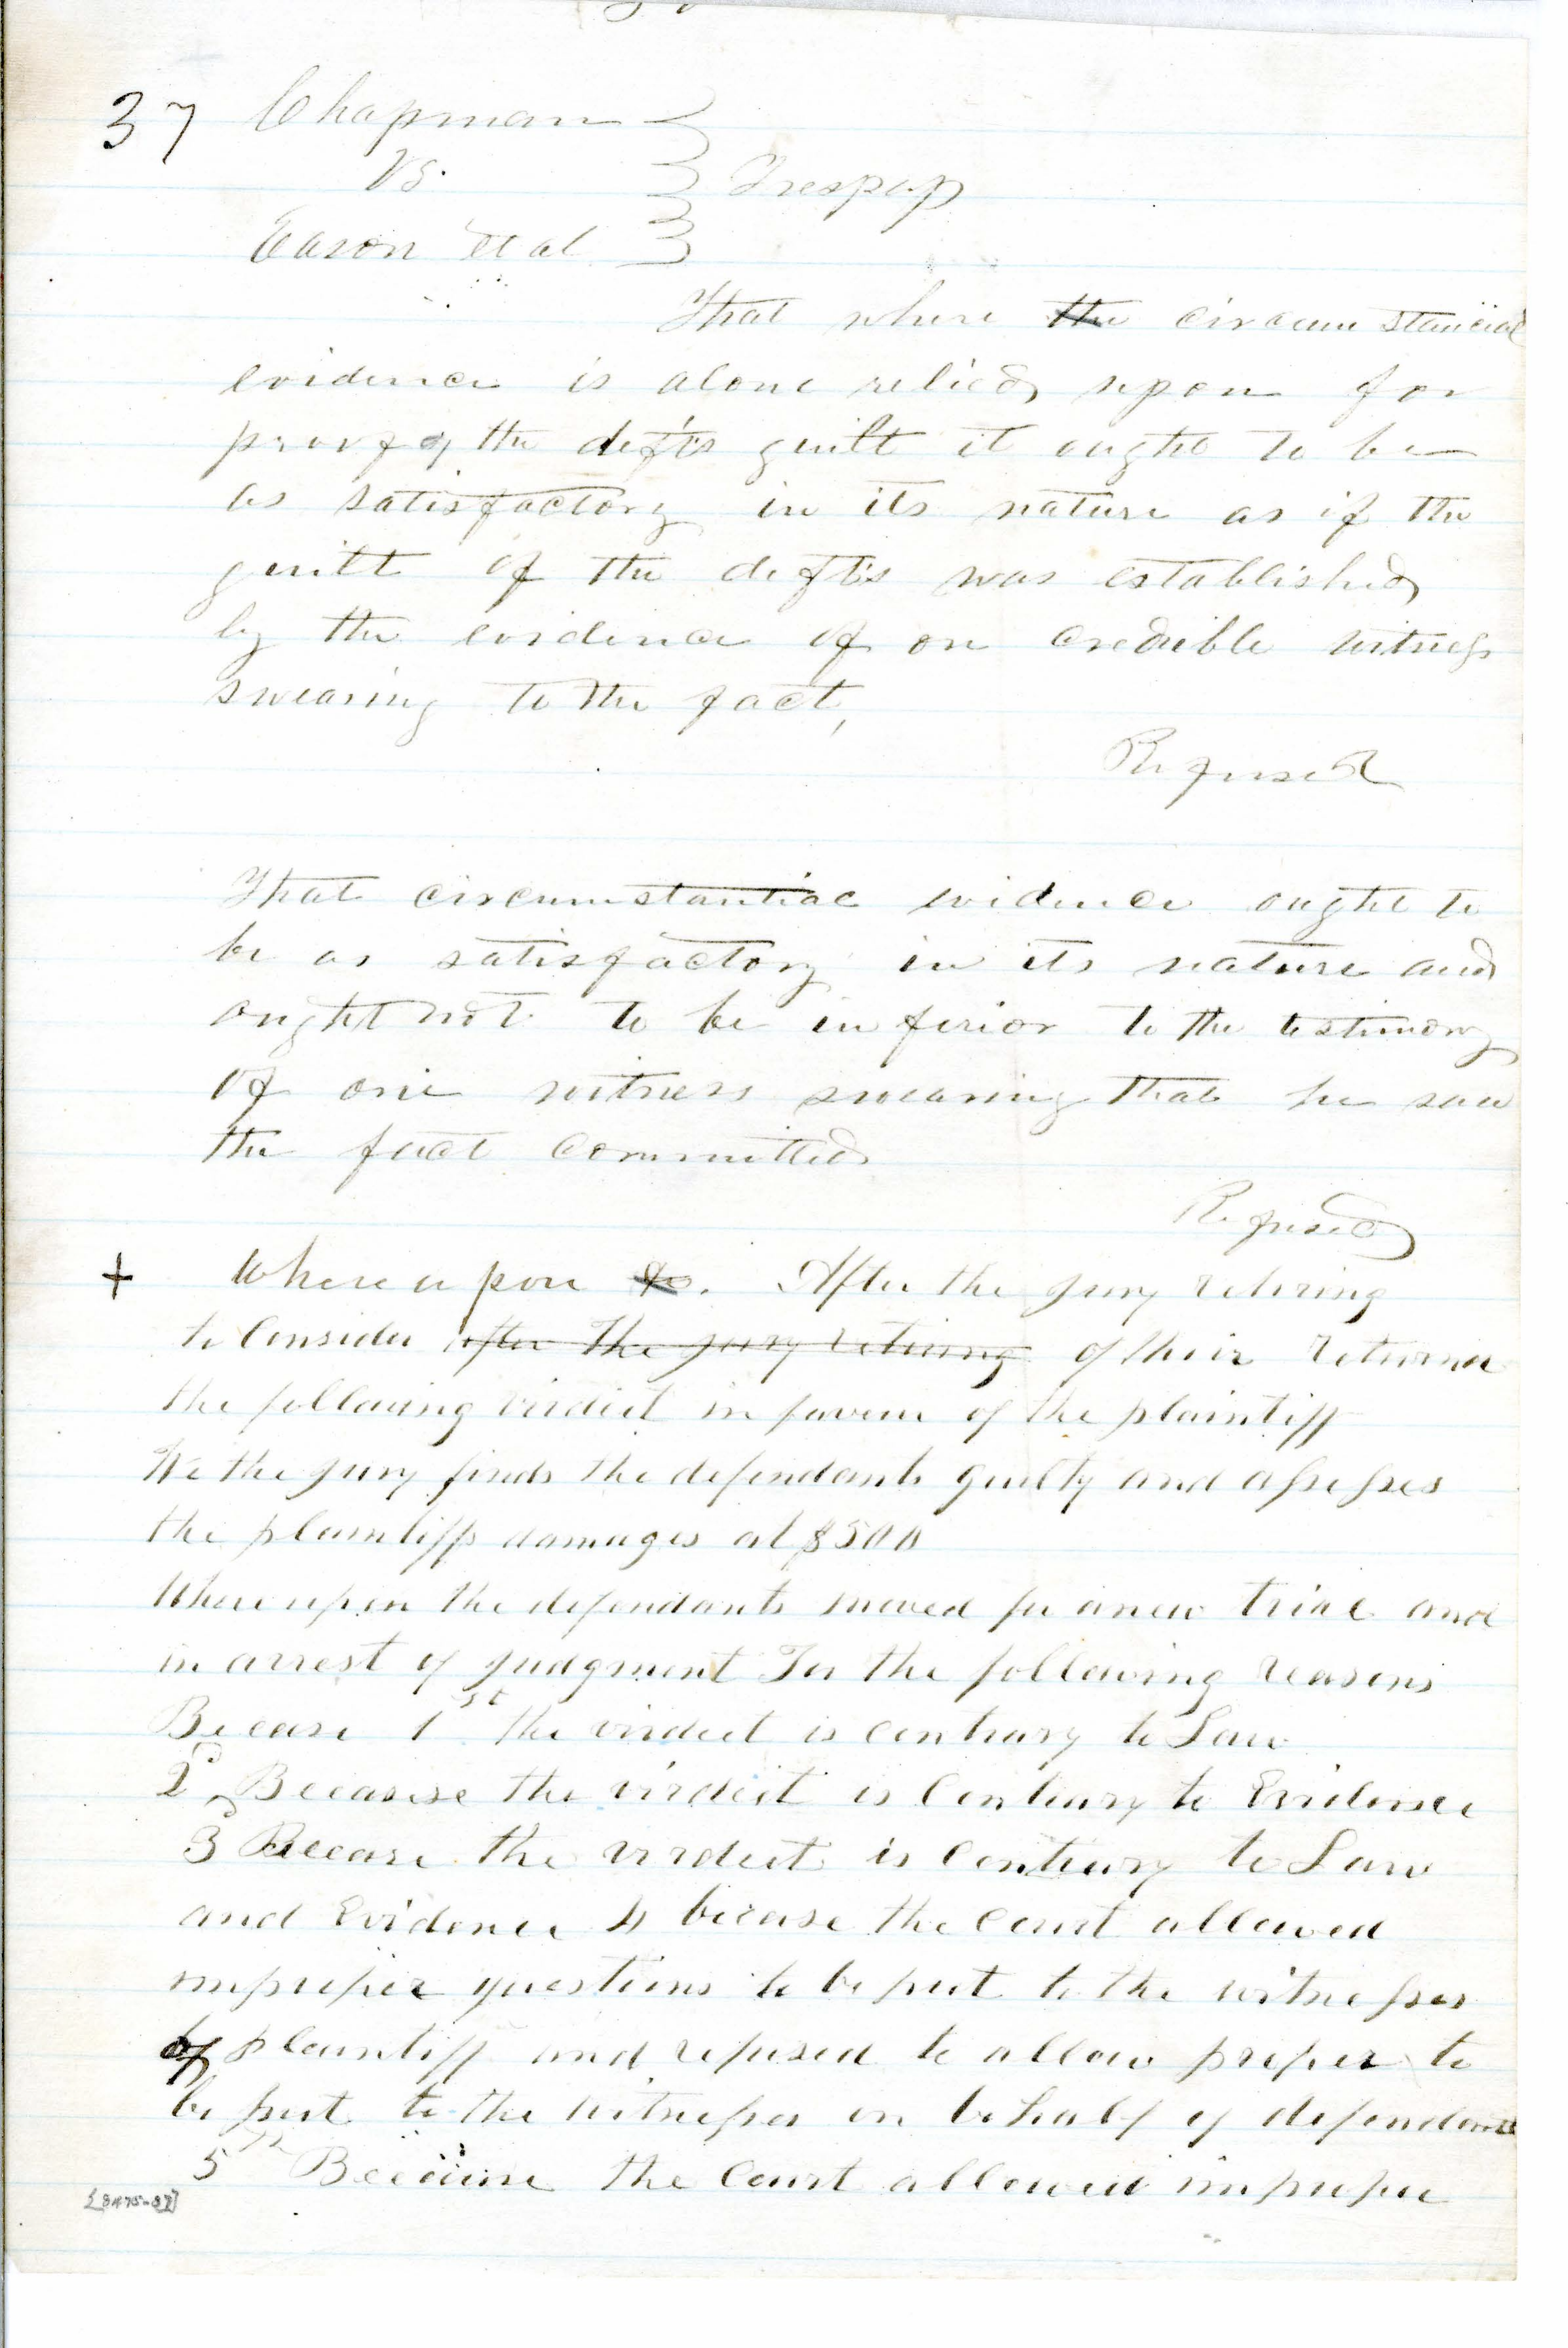 37 Chapman
Vs. } Trespass
Eason et al
That where the circumstancial
evidence is alone relied upon for
proof of the defts guilt it ought to be
as satisfactory in its nature as if the
guilt of the defts was established
by the evidence of on credible witness
swearing to the fact,
Refused
That circumstantial evidence ought to
be as satisfactory in its nature and
ought not to be inferior to the testimony
of one witness swearing that he saw
the fact committed
Refused
+ Whereupon &c. After the jury retiring
to Consider after the jury retiring of their returne
the following virdict in favour of the plaintiff
We the jury finds the defendants guilty and assesses
the plaintiffs damages at $500
Whereupon the defendants moved for a new trial and
in arrest of judgment For the following reasons
Becase 1st the virdict is contrary to Law
2d Becasise the virdict is Contrary to Evidence
3d Becase the virdict is Contrary to Law
and Evidence 4 becase the Court allowed
improper questions to be put to the witnesses
of plaintiff and refused to allow proper to
be put to the witnesses on behalf of defendants
5th Because the Court allowed improper
[3475-37]